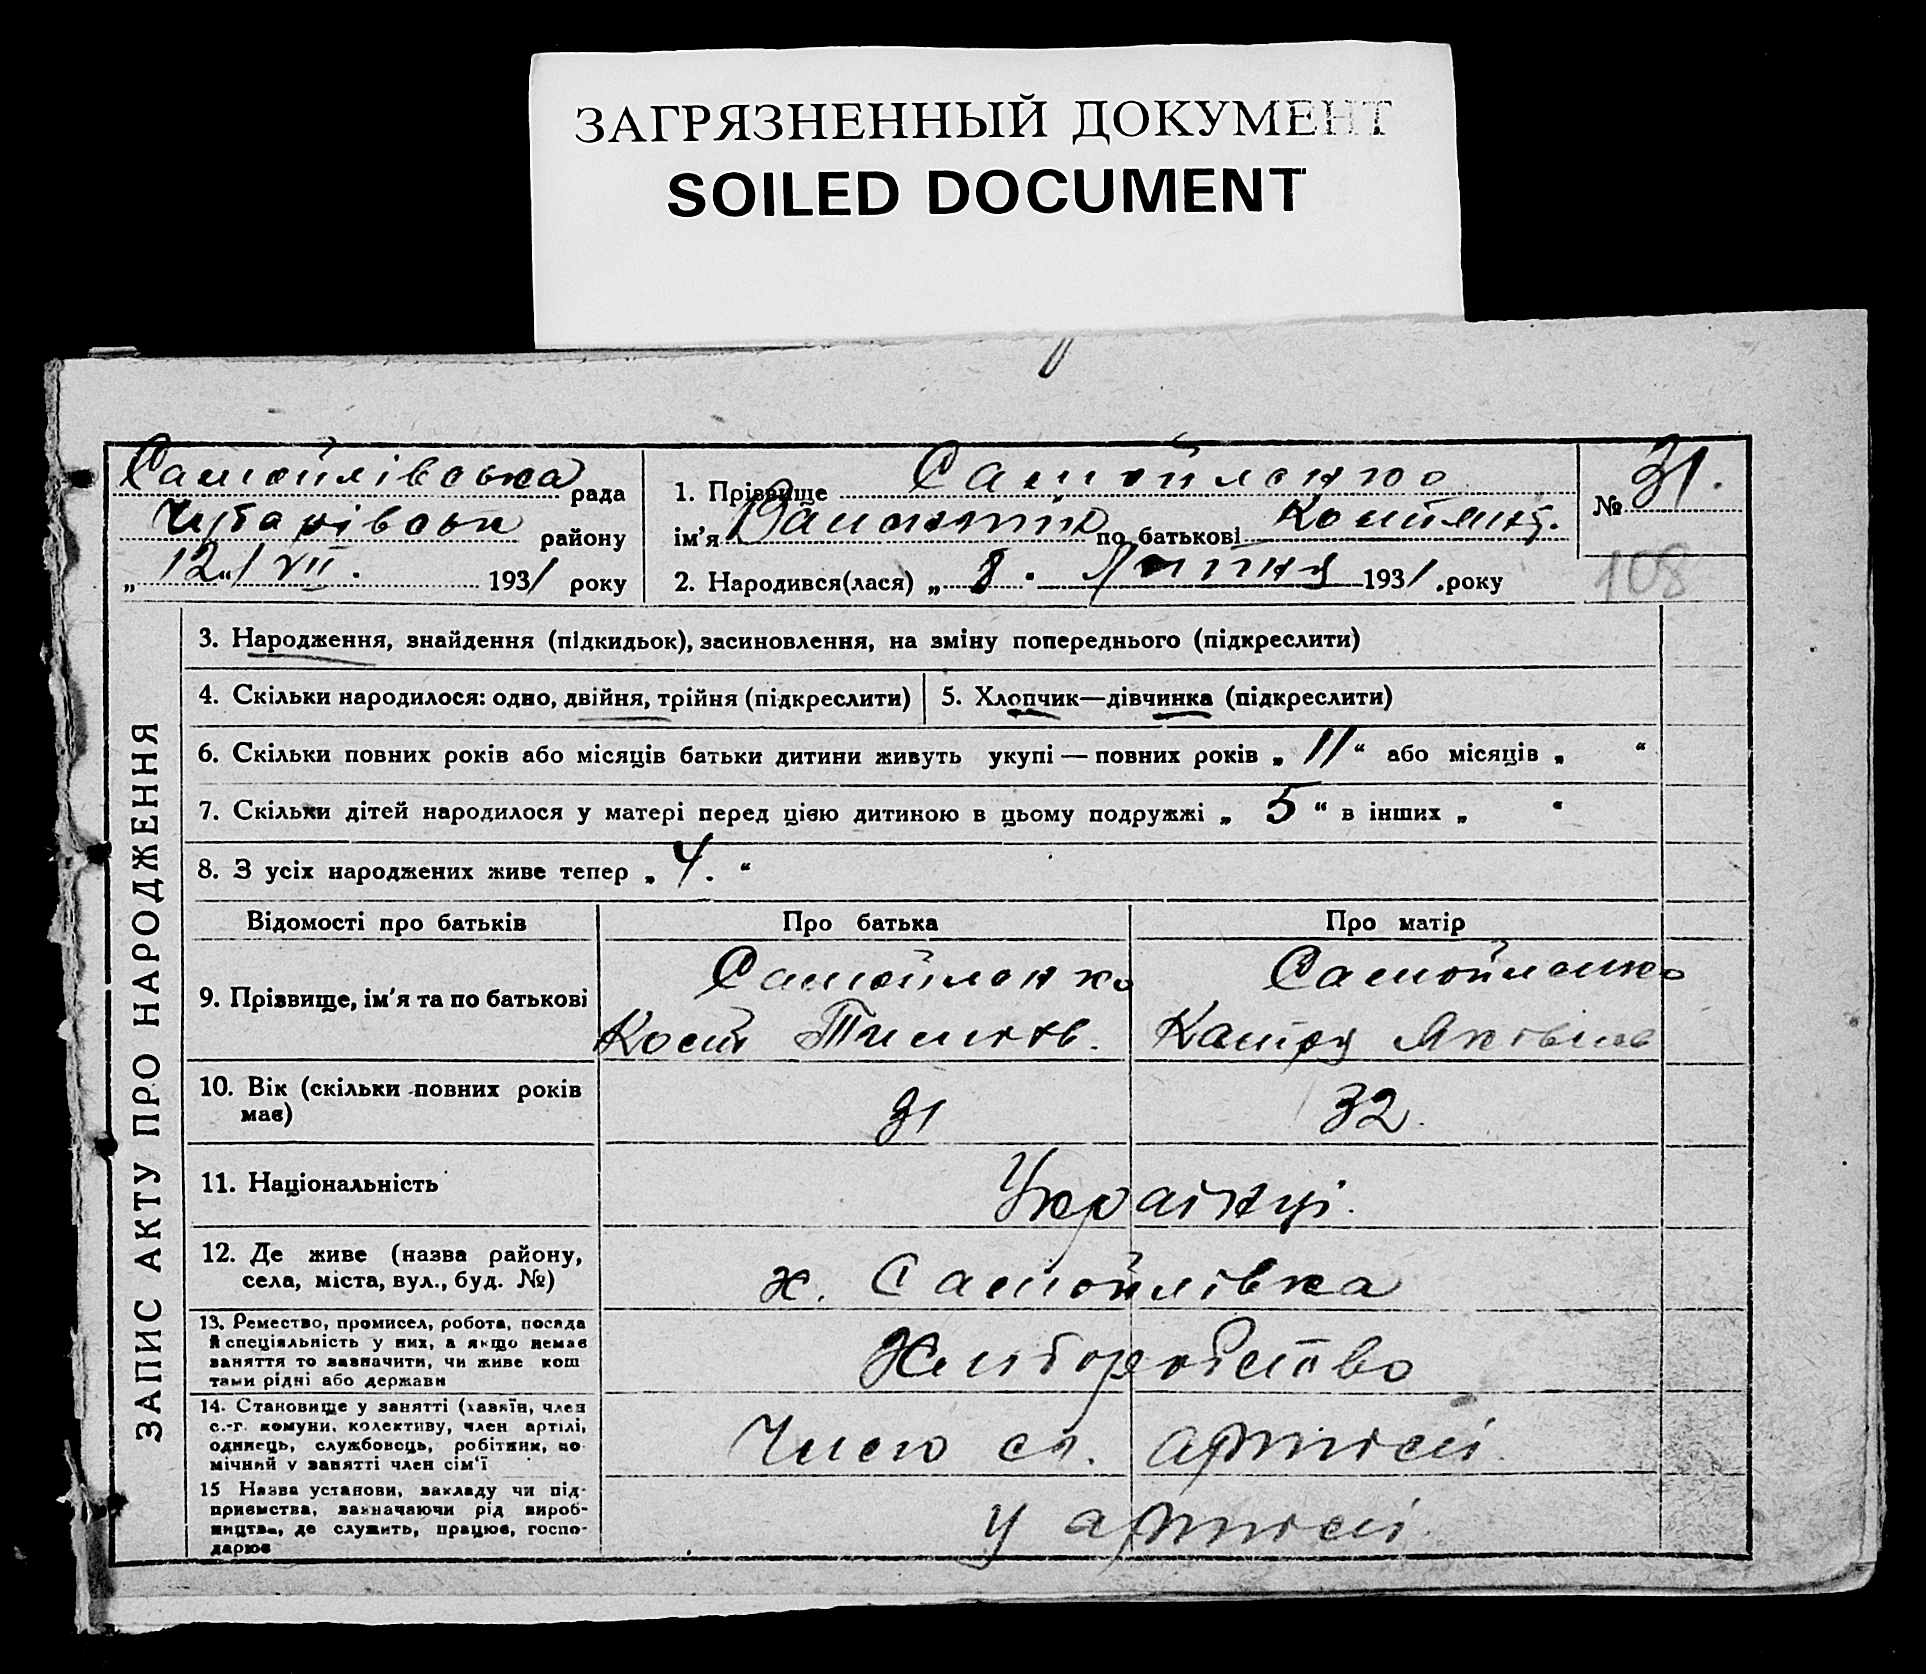 ЗАГРЯЗНЕННЫЙ ДОКУМЕНТ
SOILED DOCUMENT
Самойлівська рада
Чубарівськ району
„ 12 “ / VII. 1931 року
1. Прізвище Самойленко
ім'я по батькові
2. Народився(лася) „ 8. Липня 1931 року
№ 31.
108
ЗАПИС АКТУ ПРО НАРОДЖЕННЯ
3. Народження, знайдення (підкидьок), засиновлення, на зміну попереднього (підкреслити)
4. Скільки народилося: одно, двійня, трійня (підкреслити)
5. Хлопчик—дівчинка (підкреслити)
6. Скільки повних років або місяців батьки дитини живуть укупі — повних років „ 11 “ або місяців „ “
7. Скільки дітей народилося у матері перед цією дитиною в цьому подружжі „ 5 “ в інших „ “
8. З усіх народжених живе тепер „ 4. “
Відомості про батьків
Про батька
Про матір
9. Прізвище, ім'я та по батькові
Самойленко
Кость Тимохв.
Самойленко
Катря Яківлів
10. Вік (скільки повних років
має)
31
32.
11. Національність
Українці.
12. Де живе (назва району,
села, міста, вул., буд. №)
х. Самойлівка
13. Ремество, промисел, робота, посада
й спеціяльність у них, а якщо немає
заняття то зазначити, чи живе кош
тами рідні або держави
Хліборобство
14. Становище у занятті (хазяїн, член
с.-г. комуни, колективу, член артілі,
одинець, службовець, робітник, по-
мічний у занятті член сім'ї
артілі
15 Назва установи, закладу чи під-
приємства, зазначаючи рід вироб-
ництва, де служить, працює, госпо-
дарює
у артілі.